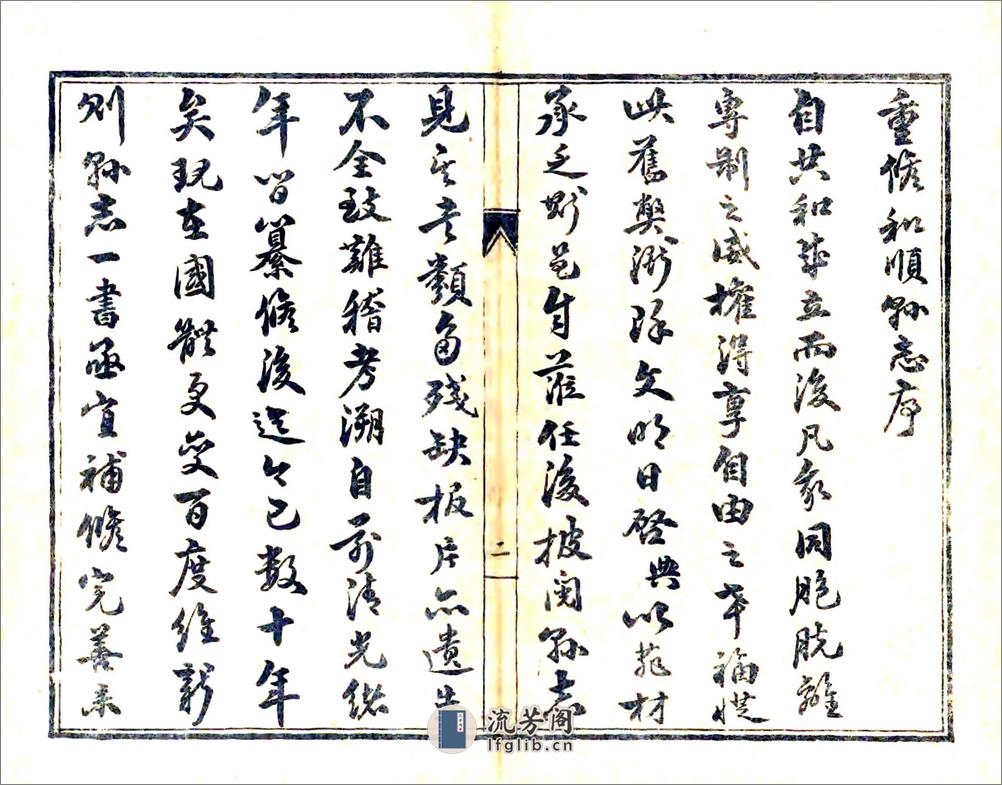 重脩和順縣志序
自共和成立而後凡我同胞脱離
專制之威權得享自由之幸福從
此舊弊漸除文明日啓典以菲材
承乏斯邑自蒞任後披閱縣志
見其書類多殘缺板片亦遺失
不全致難稽考溯自前清光緒
年間纂脩後迄今已數十年
矣現在國體更變百度維新
則縣志一書亟宜補脩完善
二
流芳阁
lfglib.cn